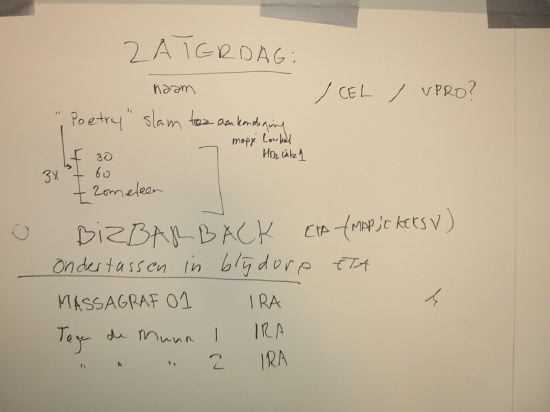 ZATERDAG:
naam / CEL / VPRO?
"Poetry" slam aankondiging
mapje
3x
30
60
zometeen
BIZBARBACK ETA-(MAPJE
ondertassen in blijdorp ETA
MASSAGRAF 01 IRA
Tege de Muur 1 IRA
" " " 2 IRA